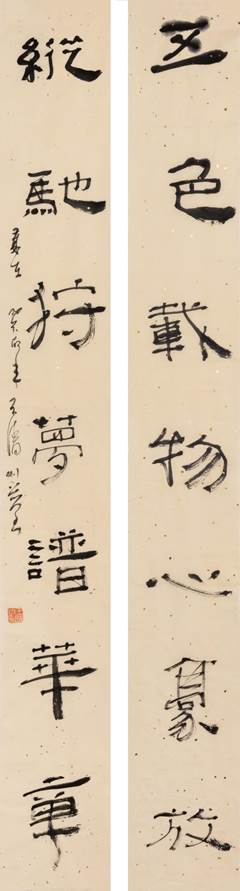 五色載物心豪放
縱馳狩夢譜華章
癸卯